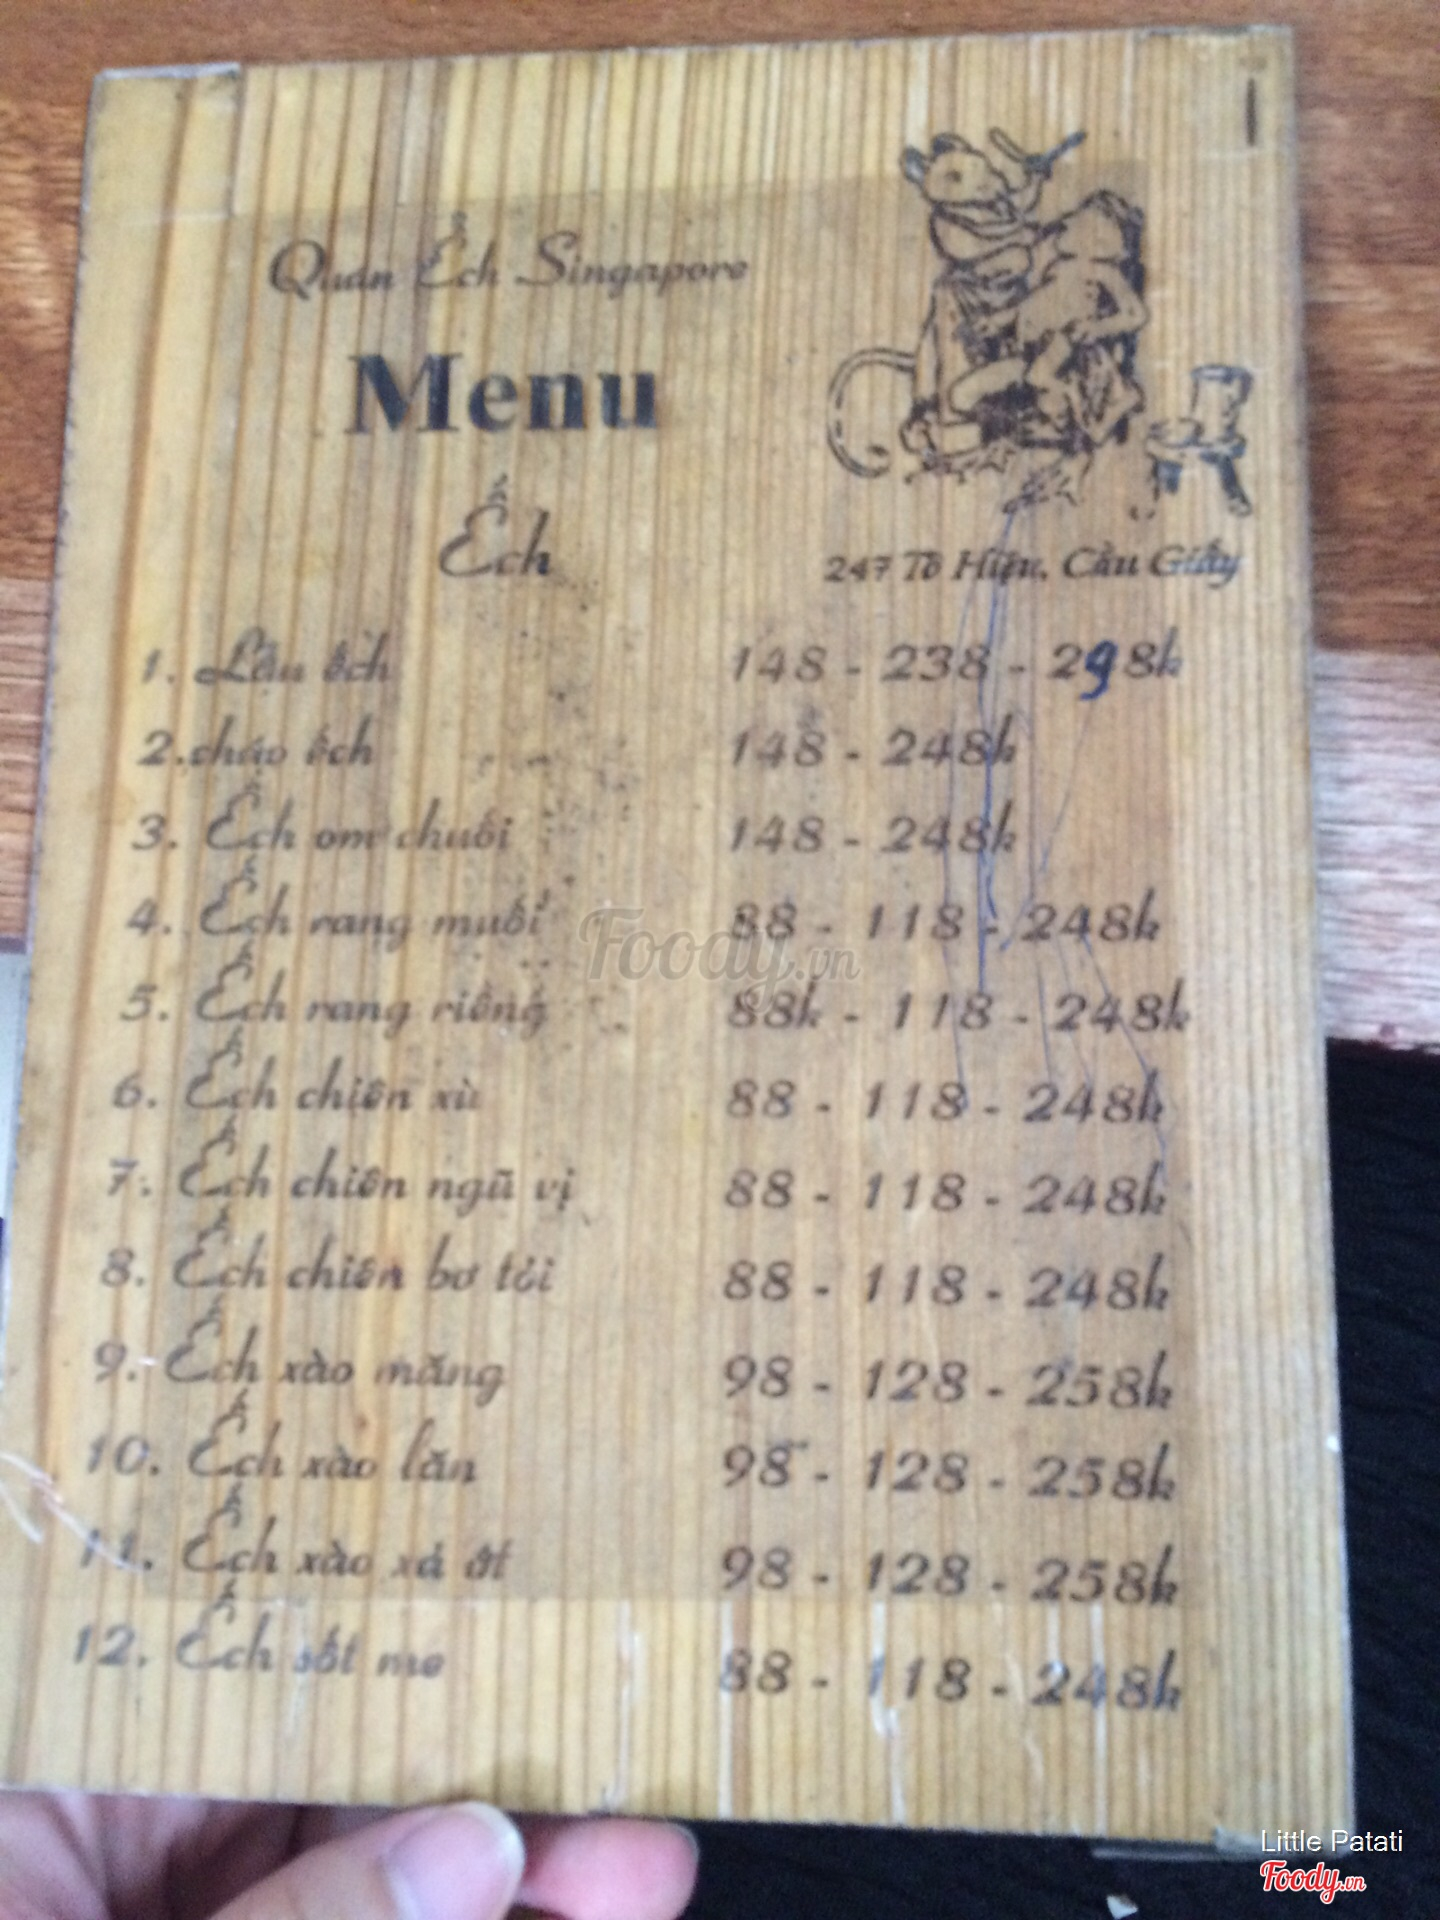 Quán Ếch Singapore
Menu
Ếch
247 Tô Hiệu, Cầu Giấy
1. Lẩu ếch 148 - 238 - 298k
2. cháo ếch 148 - 248k
3. Ếch om chuối 148 - 248k
4. Ếch rang muối 88 - 118 - 248k
5. Ếch rang riềng 88k - 118 - 248k
6. Ếch chiên xù 88 - 118 - 248k
7. Ếch chiên ngũ vị 88 - 118 - 248k
8. Ếch chiên bơ tỏi 88 - 118 - 248k
9. Ếch xào măng 98 - 128 - 258k
10. Ếch xào lăn 98 - 128 - 258k
11. Ếch xào xả ớt 98 - 128 - 258k
12. Ếch sốt me 88 - 118 - 248k
Foody.vn
Little Patati
Foody.vn